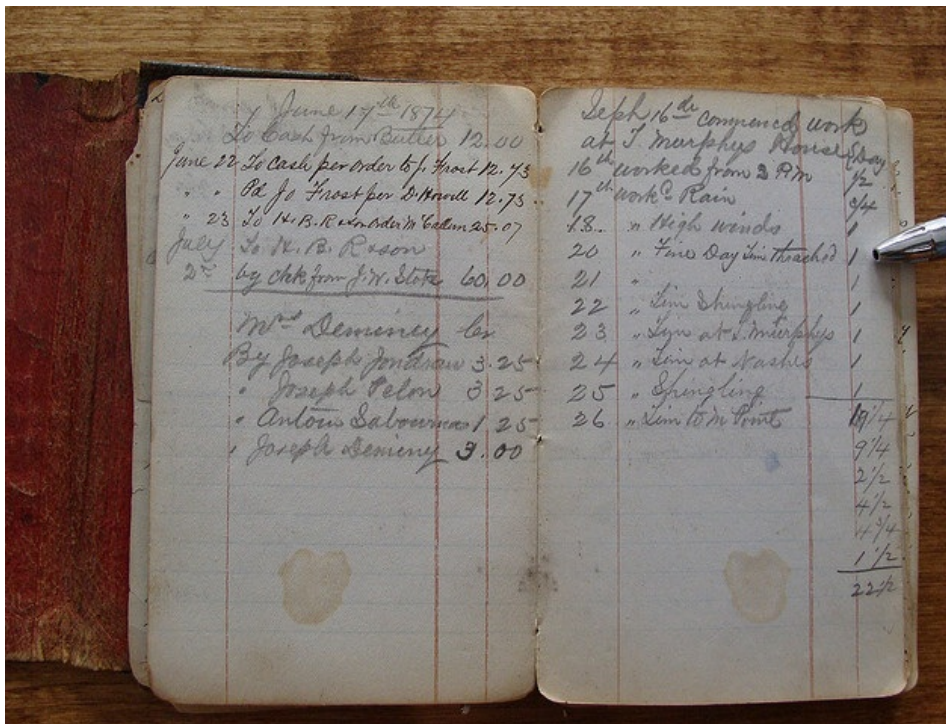 June 17th 1874
To Cash from Butler 12.00
June 22 To Cash per order to J. Frost 12.73
" " Pd Jo Frost per D. Howell 12.73
" 23 To H. B. R &son Order M 25.07
July To H. B. R &son
2 by chk from J. W. Stota 60.00
Mrs Deminey Cr
By Joseph Jondrau 3.25
" Joseph Pelon 3 25
" Antoin 1 25
" Joseph Deminy 3.00
Seph 16th commenced work
at T Murphys House Day
16th worked from 2 PM 1/2
17th work Rain 3/4
18 " High winds 1
20 " Fine Day Lim thrached 1
21 " 1
22 " Lim Shingling 1
23 " Lim at T. Murphys 1
24 " Lim at Nashes 1
25 " Shingling 1
26 " Lim to M Point 1/4
9 1/4
2 1/2
4 1/2
4 3/4
1 1/2
22 1/2